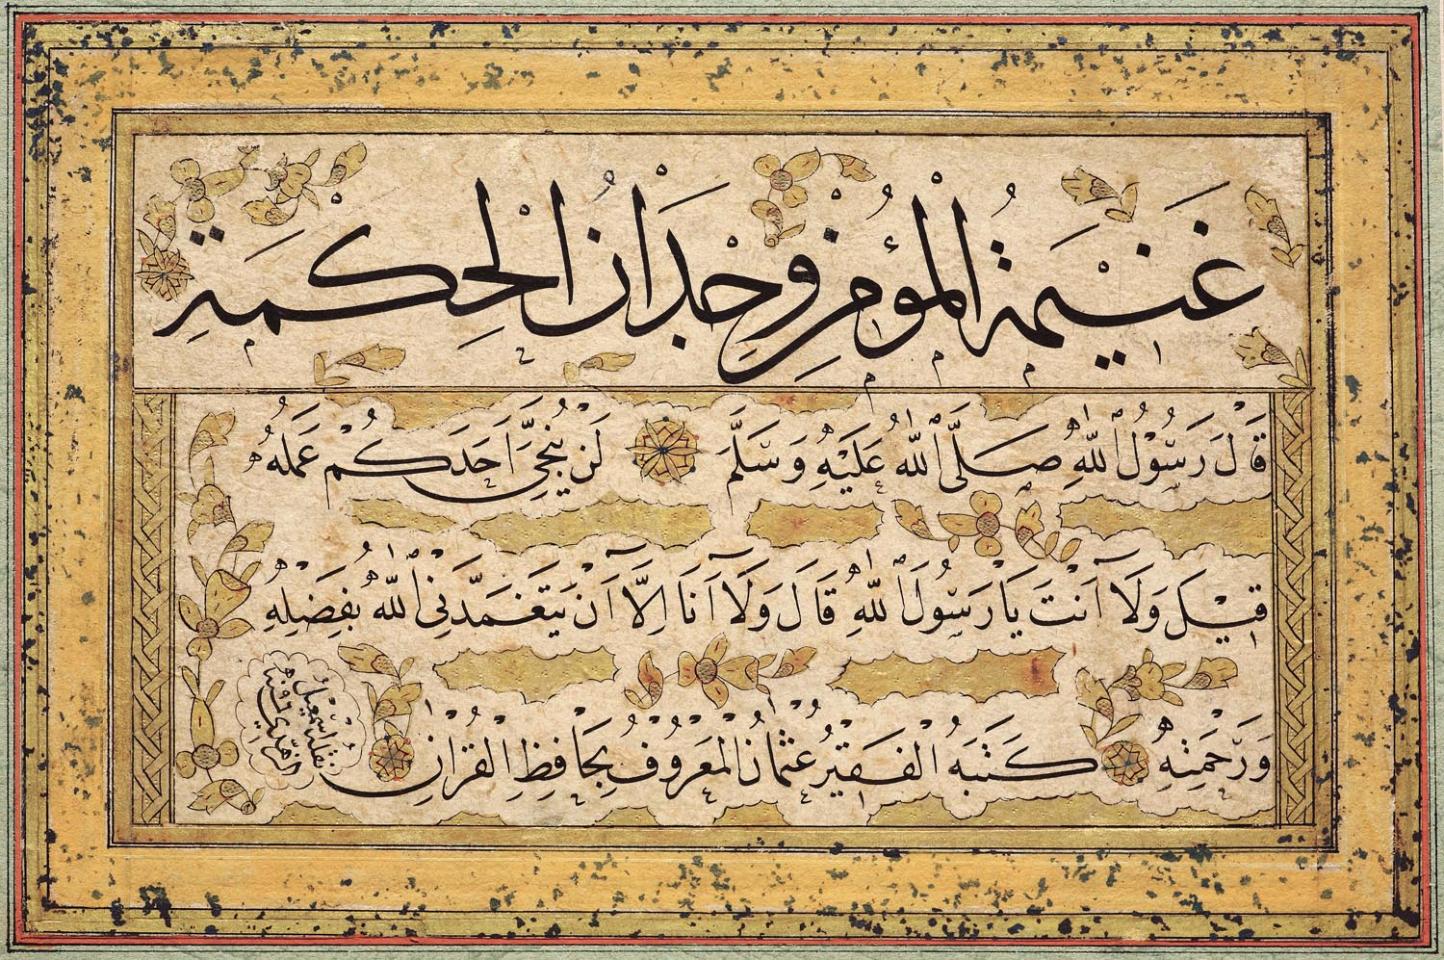 غَنِيمَةُ الْمُؤْمِنِ وِجْدَانُ الْحِكْمَةِ
قَالَ رَسُوْلُ اللّٰهِ صَلَّى اللّٰهُ عَلَيْهِ وَسَلَّمَ لَنْ يُنَجِّيَ اَحَدَكُمْ عَمَلُهُ
قِيْلَ وَلَا اَنْتَ يَا رَسُوْلَ اللّٰهِ قَالَ وَلَا اَنَا اِلَّا اَنْ يَتَغَمَّدَنِيَ اللّٰهُ بِفَضْلِهِ
وَرَحْمَتِهِ كَتَبَهُ الْفَقِيْرُ عُثْمَانُ الْمَعْرُوْفُ بِحَافِظِ الْقُرْاٰنِ